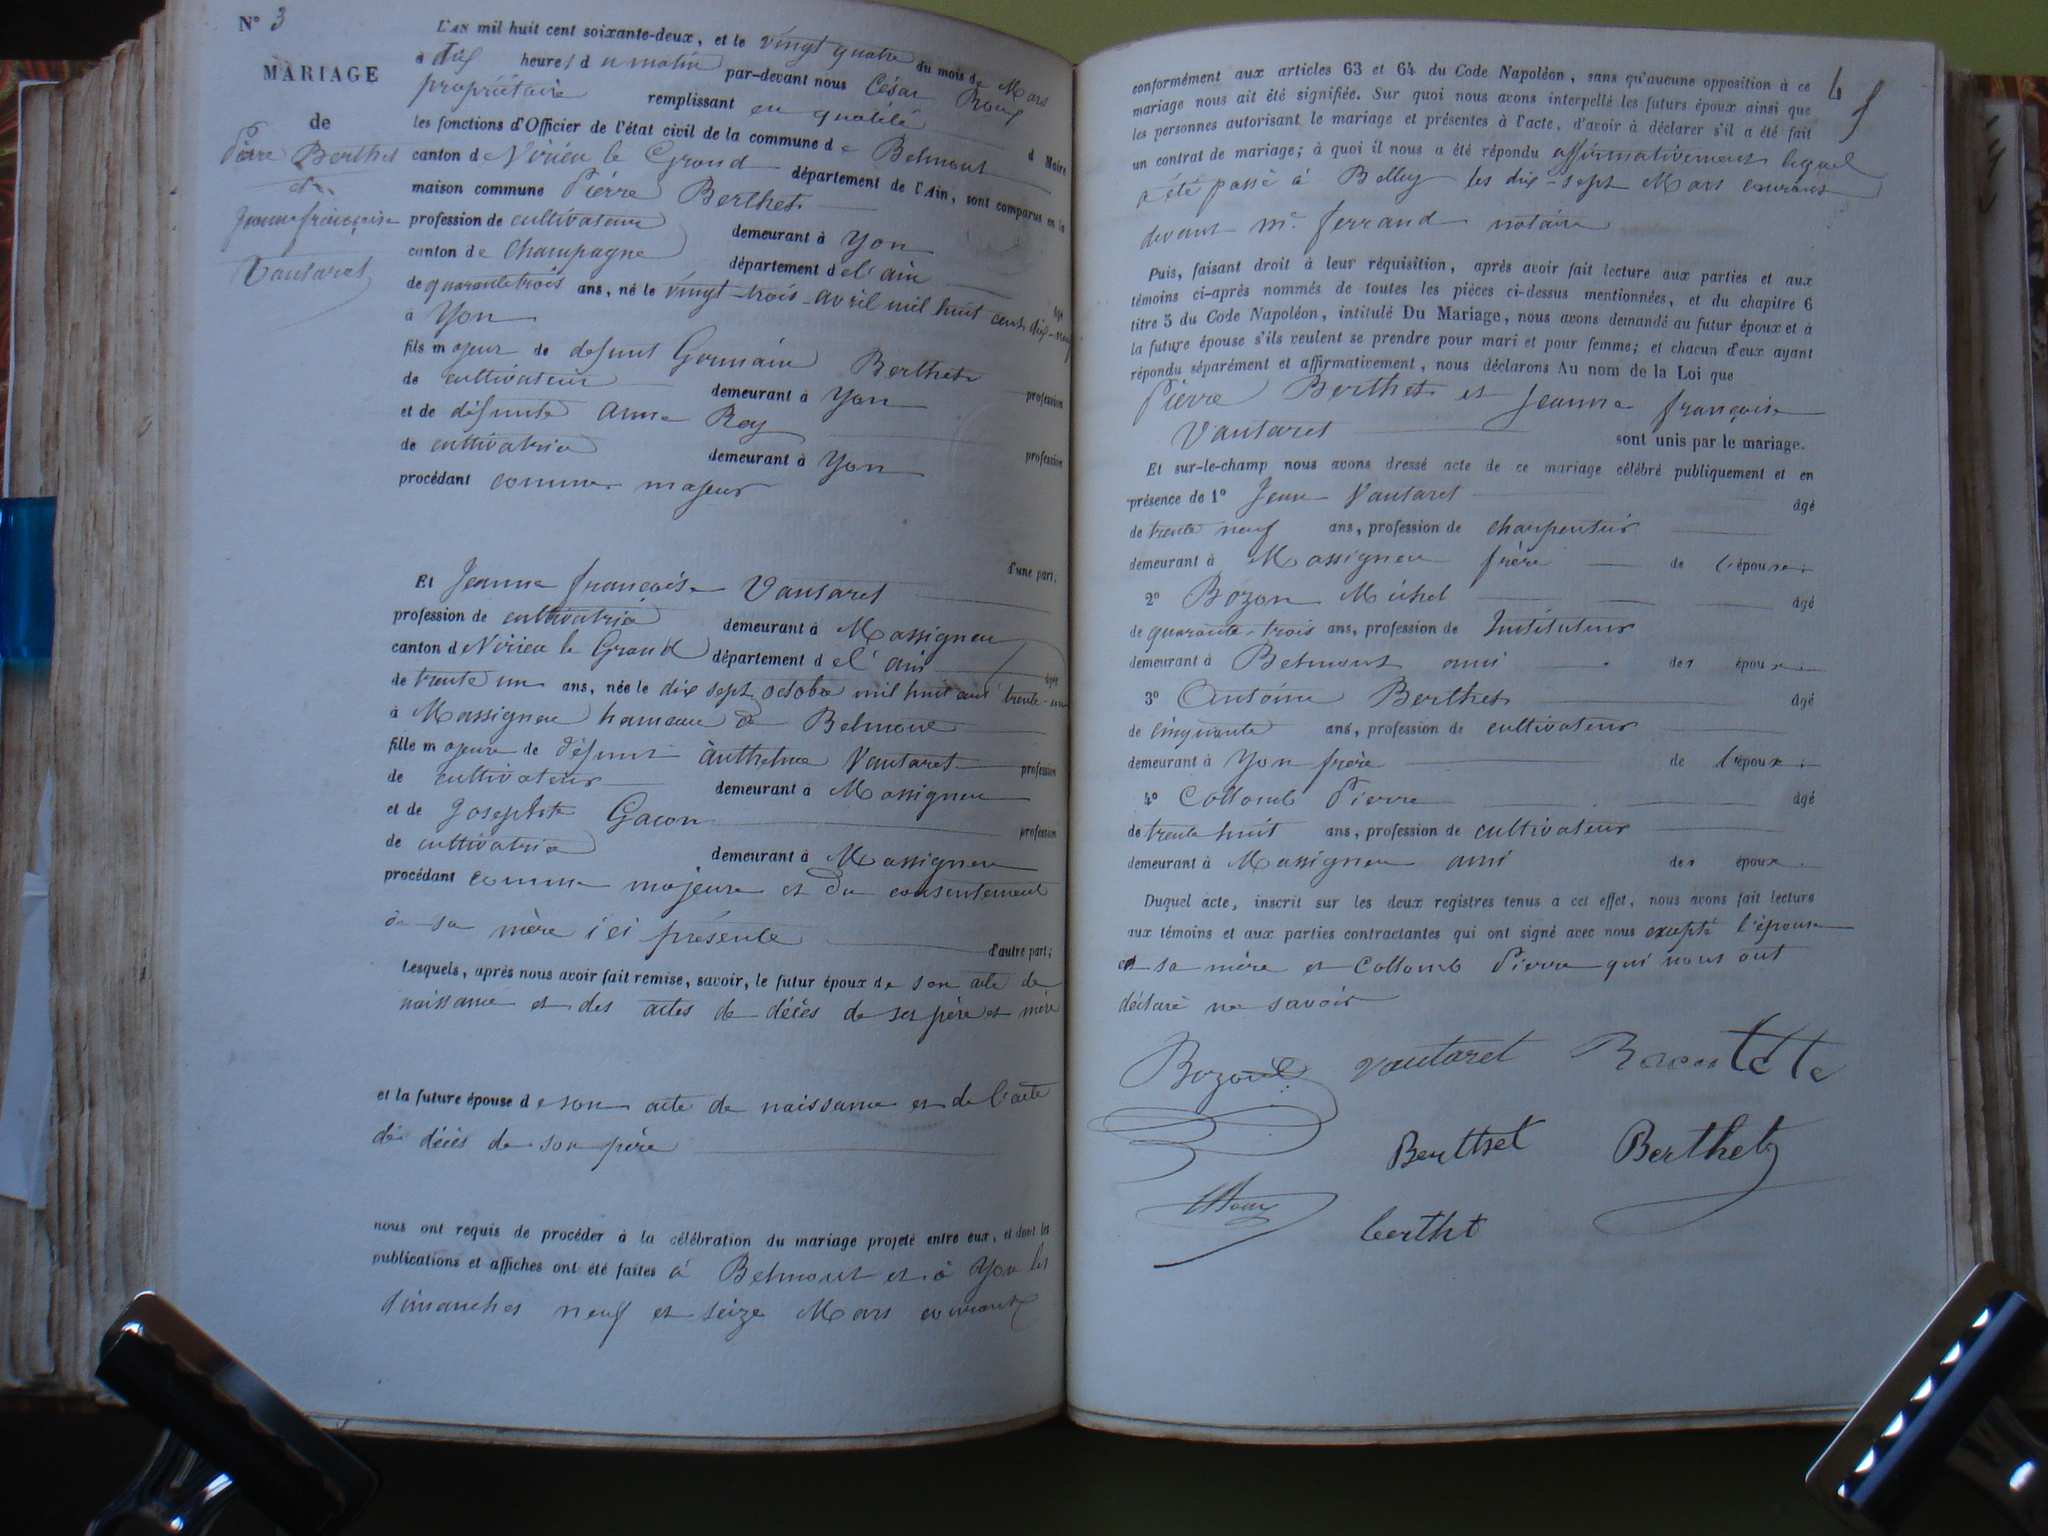 N° 3
MARIAGE
de
Pierre Berthet
et
Jeanne françoise
Vautaret
L'AN mil huit cent soixante-deux, et le vingt quatre du mois de Mars
à dix heures du matin par-devant nous César Roux
propriétaire remplissant en qualité d Maire
les fonctions d'Officier de l'état civil de la commune de Belmont
canton de Virieu le Grand département de l'Ain, sont comparus en la
maison commune Pierre Berthet
profession de cultivateur demeurant à Yon
canton de Champagne département de l'ain âgé
de quarante trois ans, né le vingt-trois avril mil huit cent dix-neuf
à Yon
fils majeur de defunt Germain Berthet profession
de cultivateur demeurant à Yon
et de défunte Anne Rey profession
de cultivatrice demeurant à Yon
procédant comme majeur
d'une part,
Et Jeanne françoise Vautaret
profession de cultivatrice demeurant à Massigneu
canton d Virieu le Grand département de l'ain âgée
de trente un ans, née le dix sept octobre mil huit cent trente-un
à Massigneu hameau de Belmont
fille majeure de défunt Anthelme Vautaret profession
de cultivateur demeurant à Massigneu
et de Josephte Gacon profession
de cultivatrice demeurant à Massigneu
procédant comme majeure et du consentement
de sa mère ici présente d'autre part;
Lesquels, après nous avoir fait remise, savoir, le futur époux de son acte de
naissance et des actes de décès de ses père et mère
et la future épouse de son acte de naissance et de l'acte
de décès de son père
nous ont requis de procéder à la célébration du mariage projeté entre eux, et dont les
publications et affiches ont été faites à Belmont et à Yon les
dimanches neuf et seize Mars courant
conformément aux articles 63 et 64 du Code Napoléon, sans qu'aucune opposition à ce
mariage nous ait été signifiée. Sur quoi nous avons interpellé les futurs époux ainsi que
les personnes autorisant le mariage et présentes à l'acte, d'avoir à déclarer s'il a été fait
un contrat de mariage; à quoi il nous a été répondu affirmativement lequel
a été passé à Belley les dix-sept Mars courant
devant Me ferrand notaire
Puis, faisant droit à leur réquisition, après avoir fait lecture aux parties et aux
témoins ci-après nommés de toutes les pièces ci-dessus mentionnées, et du chapitre 6
titre 5 du Code Napoléon, intitulé Du Mariage, nous avons demandé au futur époux et à
la future épouse s'ils veulent se prendre pour mari et pour femme; et chacun d'eux ayant
répondu séparément et affirmativement, nous déclarons Au nom de la Loi que
Pierre Berthet et Jeanne françoise
Vautaret sont unis par le mariage.
Et sur-le-champ nous avons dressé acte de ce mariage célébré publiquement et en
présence de 1° Jean Vautaret âgé
de trente neuf ans, profession de charpentier
demeurant à Massigneu frère de l'épouse
2° Bozon Michel âgé
de quarante-trois ans, profession de Instituteur
demeurant à Belmont ami des époux
3° Antoine Berthet âgé
de cinquante ans, profession de cultivateur
demeurant à Yon frère de l'époux
4° Collomb Pierre âgé
de trente huit ans, profession de cultivateur
demeurant à Massigneu ami des époux
Duquel acte, inscrit sur les deux registres tenus à cet effet, nous avons fait lecture
aux témoins et aux parties contractantes qui ont signé avec nous excepté l'épouse
et sa mère et Collomb Pierre qui nous ont
déclaré ne savoir
Bozon Vautaret
Berthet Berthet
berthet